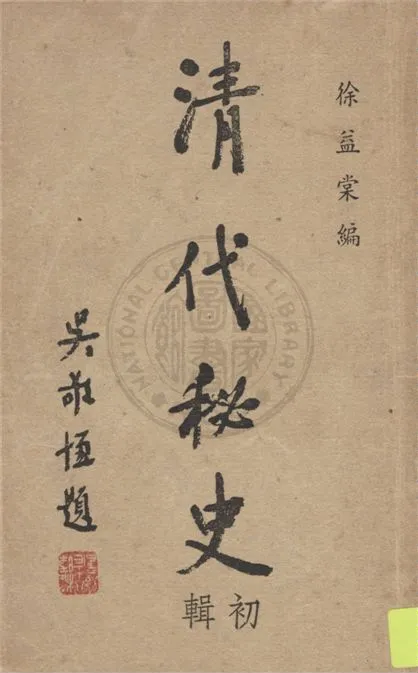 徐益棠編
清代秘史
初輯
吳敬恆題
NATIONAL CENTRAL LIBRARY
國家圖書館